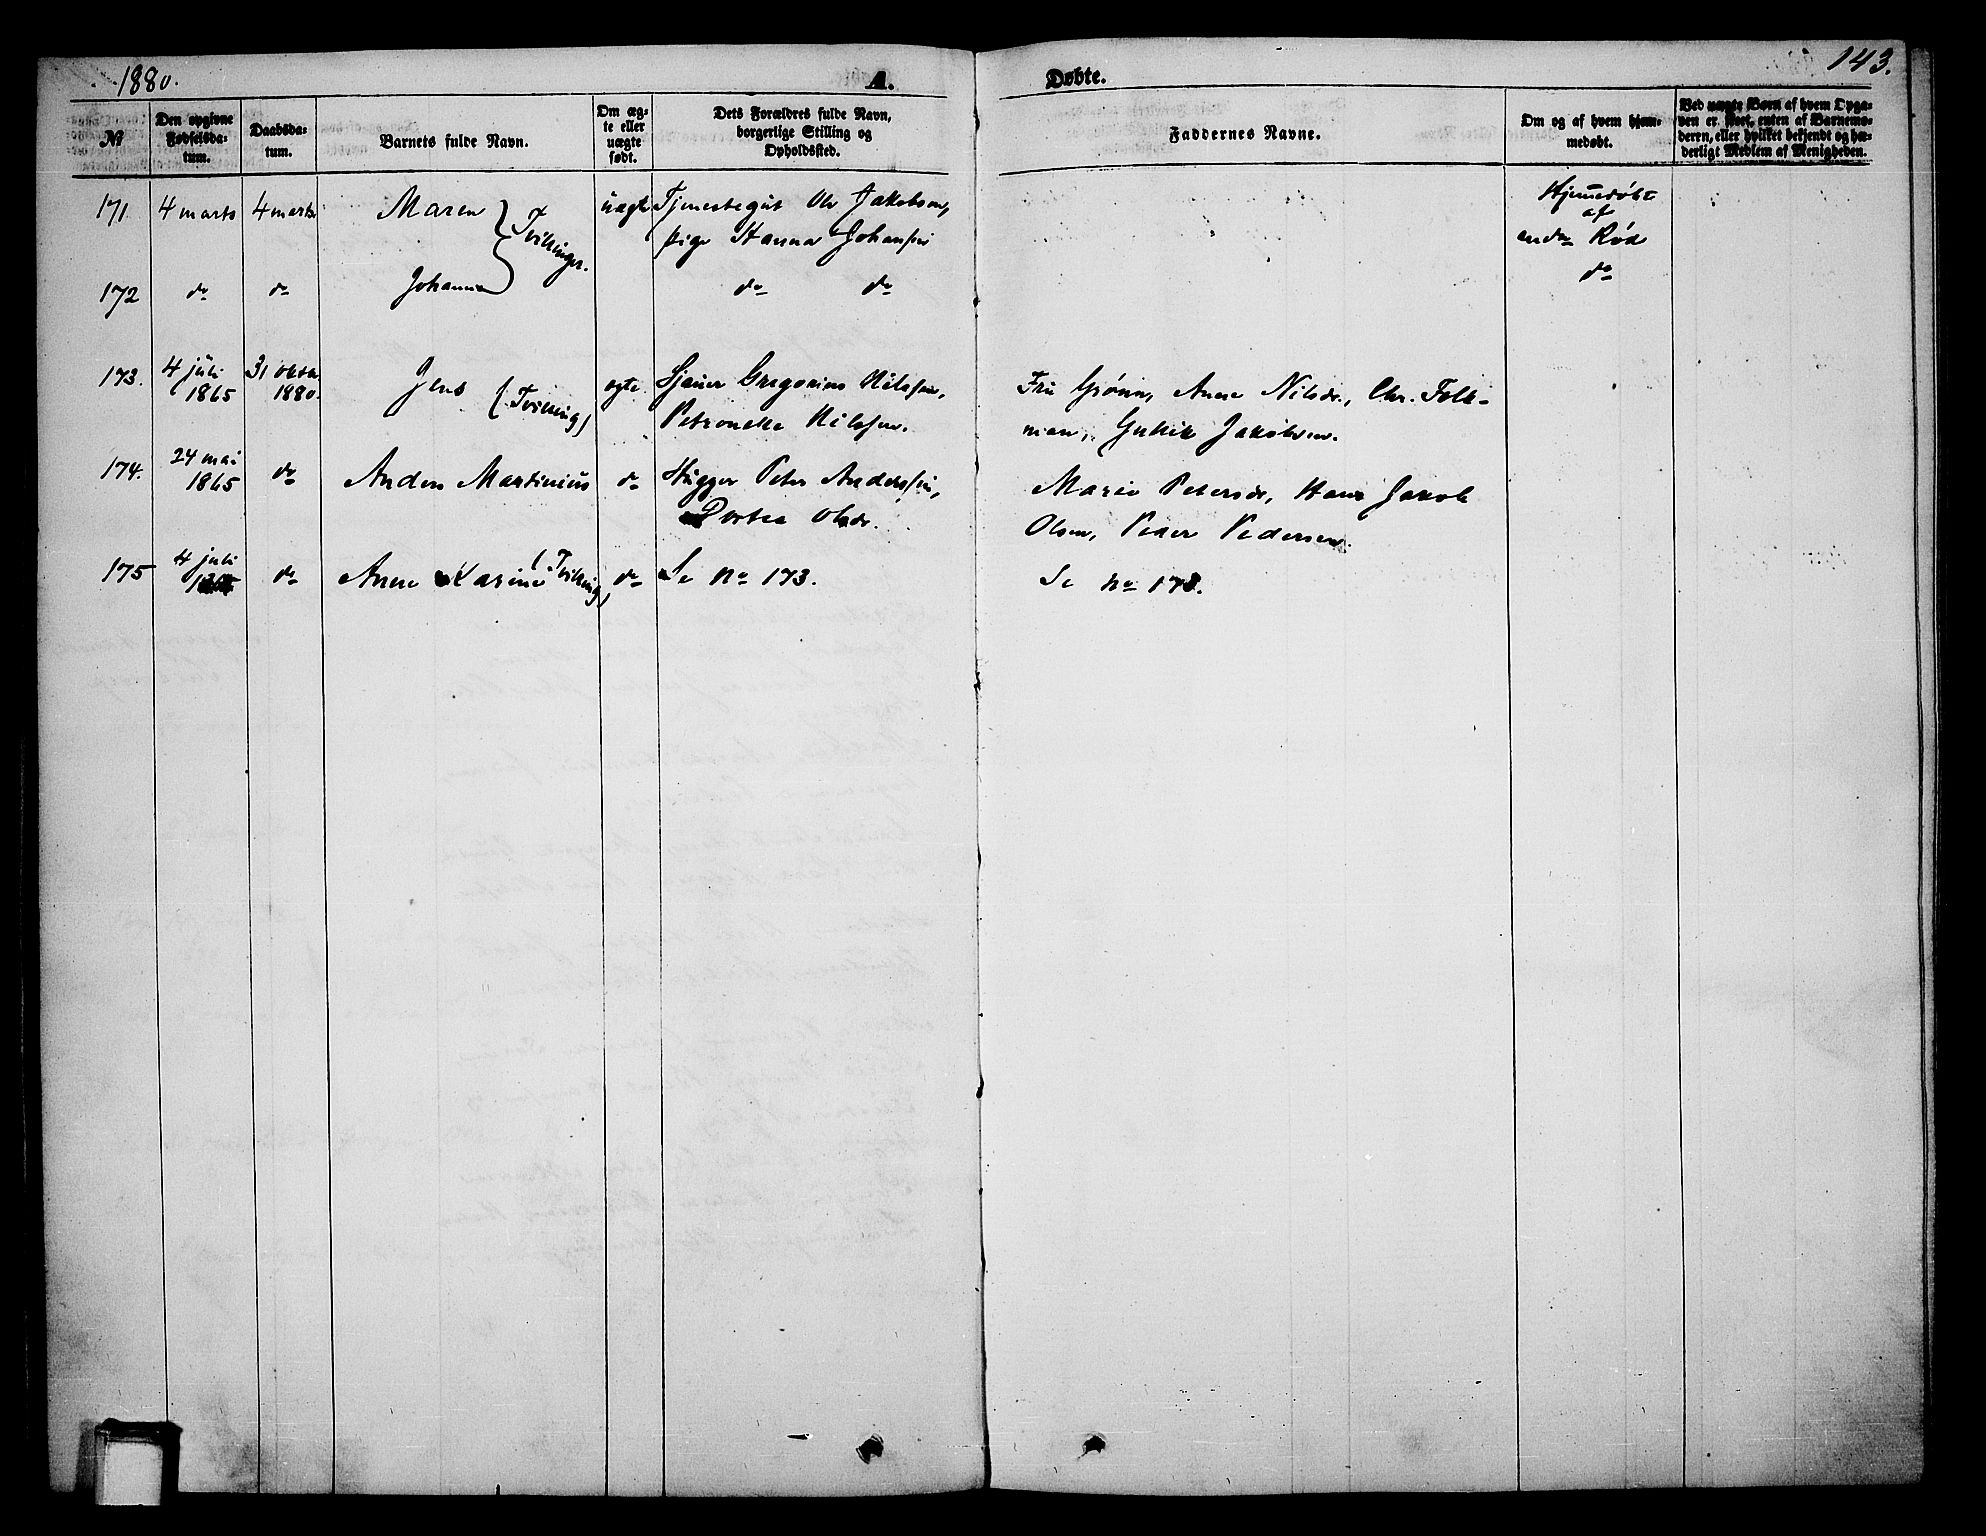 1880. A. Døbte. 143.
№ | Den opgivne Fødselsdatum. | Daabsdatum. | Barnets fulde Navn. | Om ægte eller uægte født. | Dets Forældres fulde Navn, borgerlige Stilling og Opholdssted. | Faddernes Navne. | Om og af hvem hjemmedøbt. | Ved uægte Børn af hvem Opgaven er skeet, enten af Barnemoderen, eller hvilket bekjendt og hæderligt Medlem af Menigheden.
171. 4 marts 4 marts Maren } Tvillinger. uægte Tjenestegut Ole Jakobsen, Hjemmedøbt
pige Hanna Johansen af Rød
172 do do Johanna do do do
173. 4 juli 31 oktbr. Jens (Tvilling) ægte Sjauer Gregorius Nilssen, Fru Grønn, Anne Nilsdr., Chr. Folk-
1865 1880. Petronelle Nilssen. man, Gullik Jakobsen.
174. 24 mai do Anders Martinius do Hugger Peter Anderssen, Marie Petersdr, Hans Jakob
1865 Dortea Olsdr. Olsen, Peder Pedersen.
175 4 juli do Anne Karine (Tvilling) do Se no 173. Se no 173.